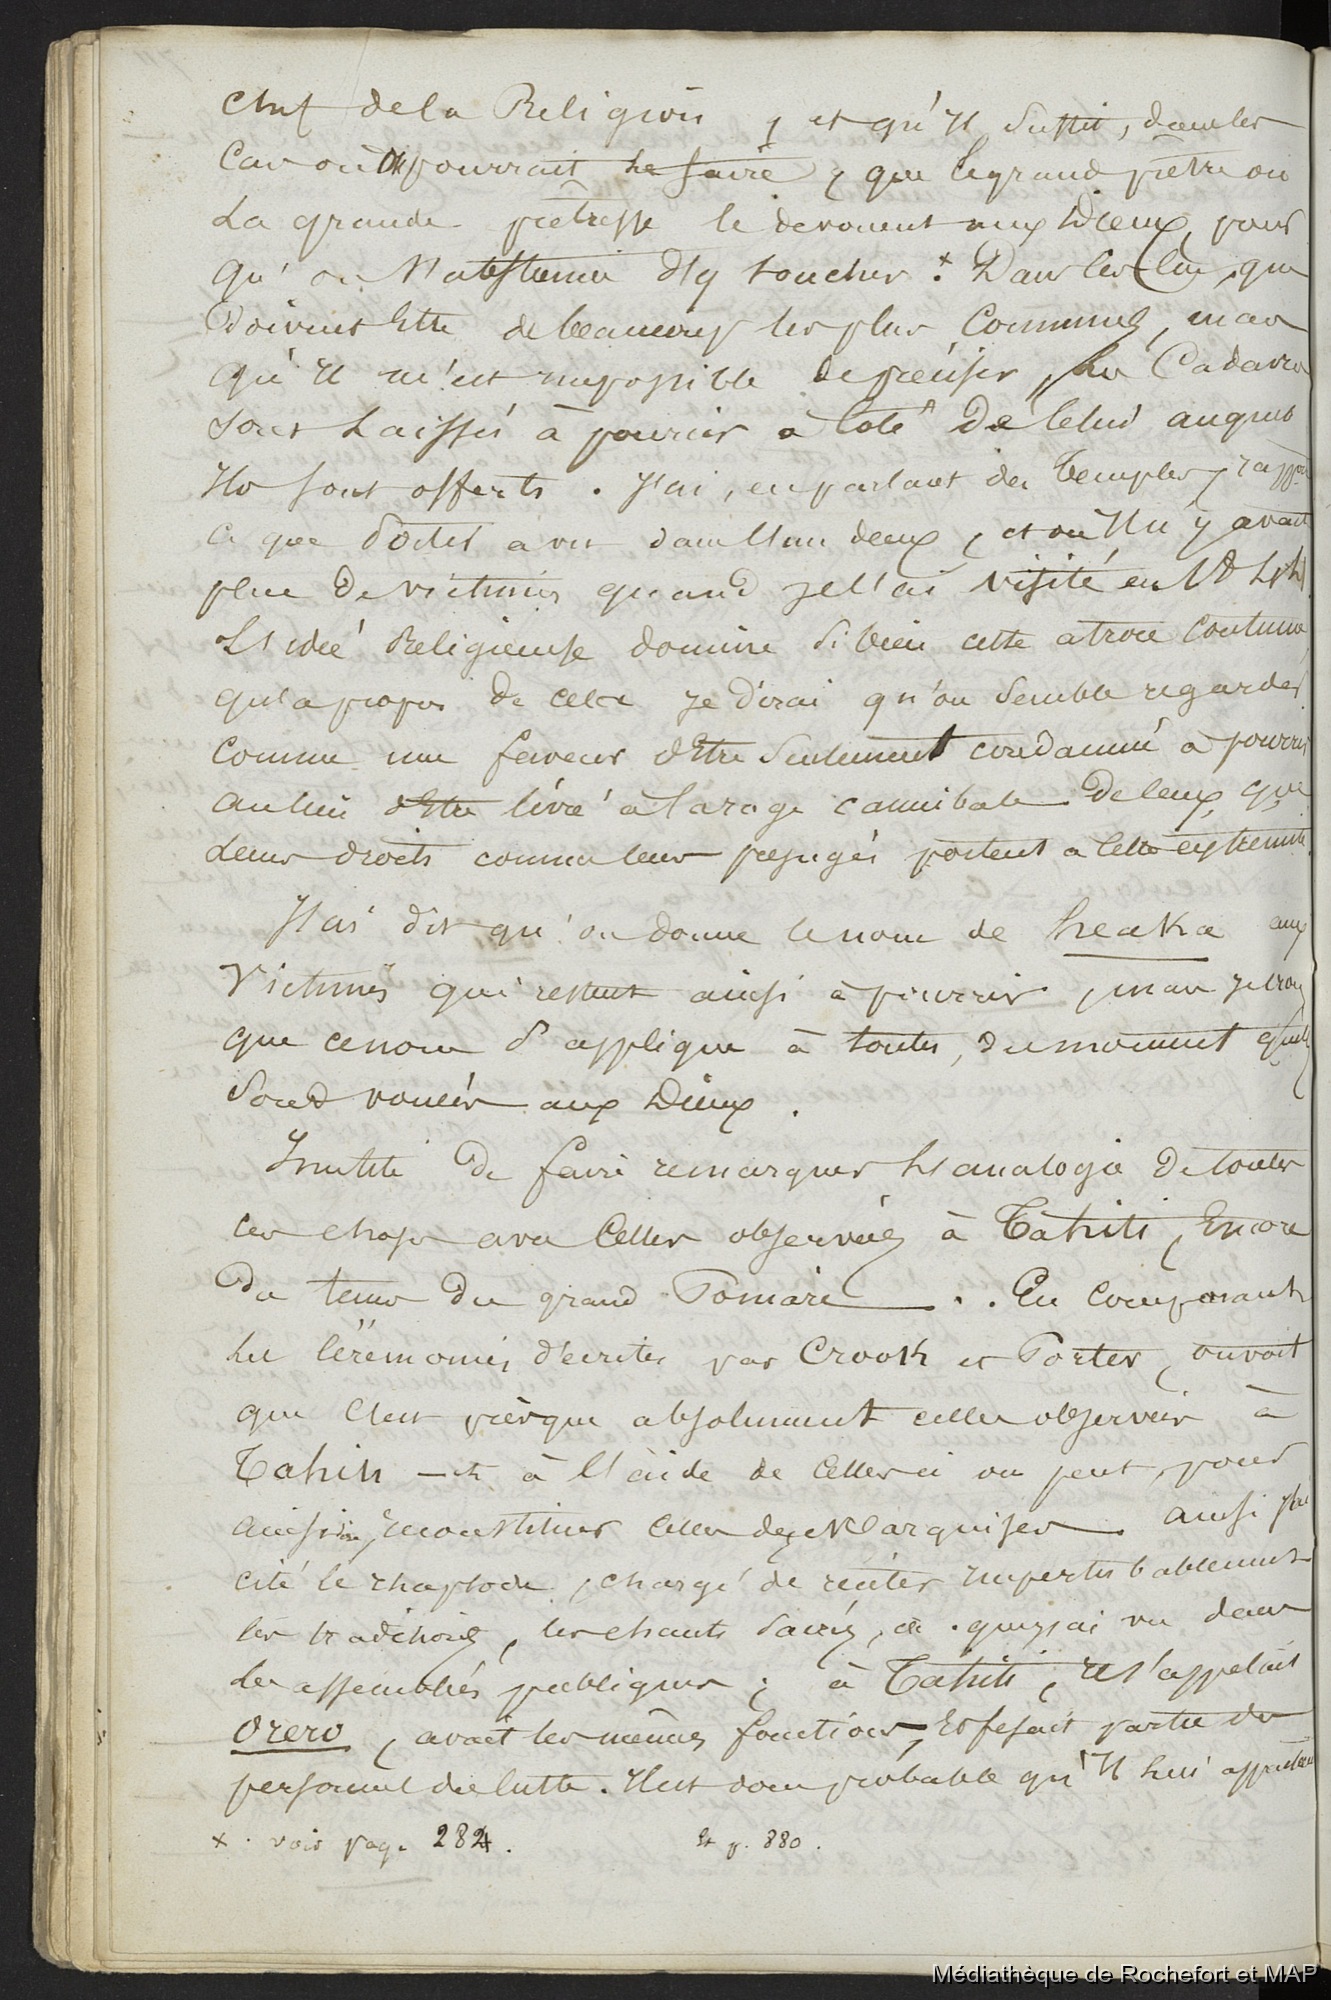 chef de la Religion, et qu'il suffit, dans les
Cas où on pourrait le faire, que le grand prêtre ou
La grande prêtresse le devouent aux Dieux, pour
qu'on s'abstienne d'y toucher. x Dans les lieux, que
doivent Etre de beaucoup les plus Communs, mais
qu'il m'est impossible de préciser, les Cadavres
sont Laissés à pourrir à Coté de Celui auquel
Ils sont offerts. J'ai, en parlant des Temples, rapporté
ce que Porter a vu dans l'un deux, et où Il n'y avait
plus de victimes quand je l'ai visité en 1844
L'idée Religieuse domine si bien cette atroce coutume,
qu'a propos de cela je dirai qu'on semble regarder
comme une faveur d'Etre seulement condamné à pourrir
au lieu d'Etre livré à la rage cannibale de ceux que
leurs droits comme leurs préjugés portent a cette extremité.
J'ai dit qu'on donne le nom de heaka aux
Victimes qui restent ainsi à pourrir, mais je crois
que ce nom s'applique à toutes, du moment qu'elles
sont vouées aux Dieux.
Inutile de faire remarquer L'analogie de toutes
ces choses avec Celles observées à Tahiti, Encore
du tems du grand Pomaré . . En comparant
les Cérémonies décrites par Crook et Porter, on voit
que C'est presque absolument celles observées à
Tahiti — et à l'aide de Celles ci on peut, pour
ainsi dire, reconstituer celles des Marquises. ainsi j'ai
cité le rhapsode, chargé de réciter imperturbablement
les traditions, les chants sacrés, et que j'ai vu dans
les assemblées publiques; à Tahiti, Il s'appelait
Orero, avait les mêmes fonctions, Et fesait partie du
personnel du culte. Il est donc probable qu'Il lui appartenait
x . voir page 284. Et p. 880.
Médiathèque de Rochefort et MAP